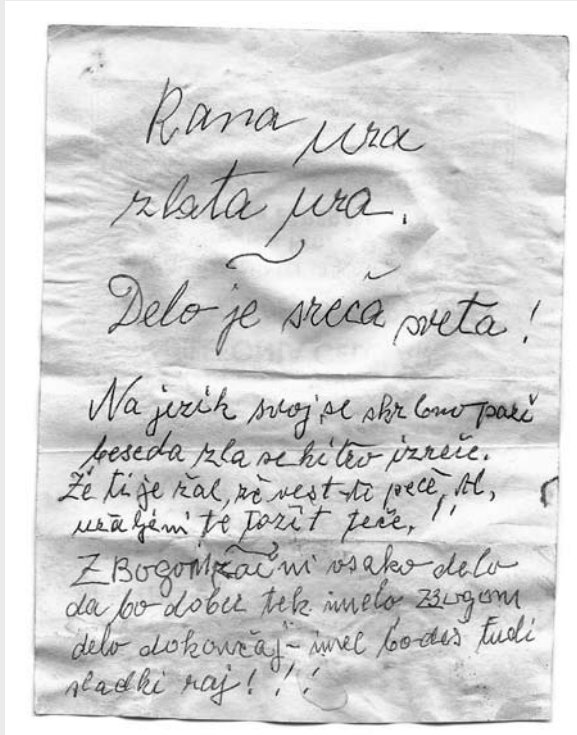 Rana ura
zlata ura.
Delo je sreča sveta!
Na jezik svoj se skrbno pazi
beseda zla se hitro izreče.
Že ti je žal, že vest te peče,
užaljeni te tožit teče,
Z Bogom začni vsako delo
da bo dober tek imelo Z Bogom
delo dokončaj - imel bodeš tudi
sladki raj!!!